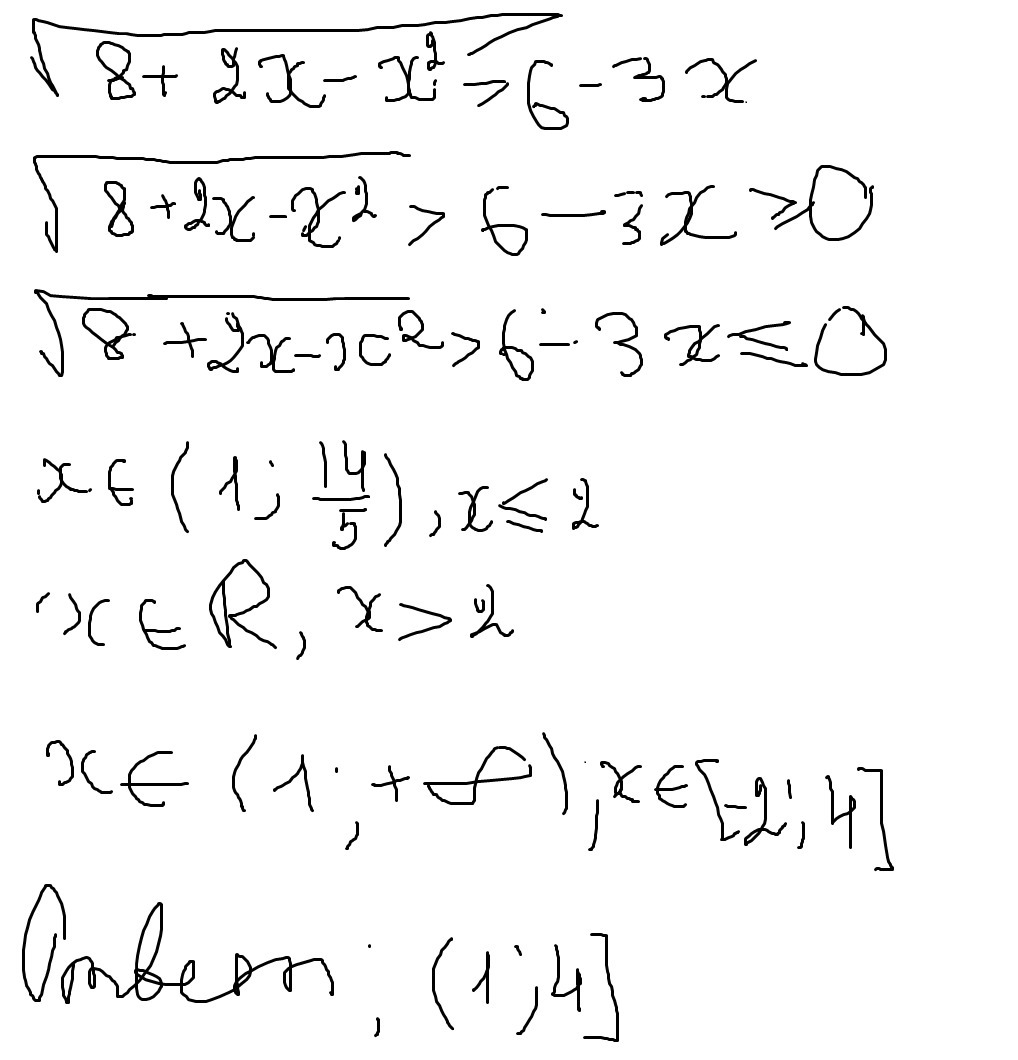 √(8+2x-x²) > 6-3x
√(8+2x-x²) > 6-3x ≥ 0
√(8+2x-x²) > 6-3x ≤ 0
x∈(1; 14/5), x≤2
x∈R, x>2
x∈(1; +∞), x∈[-2; 4]
Ответ: (1; 4]